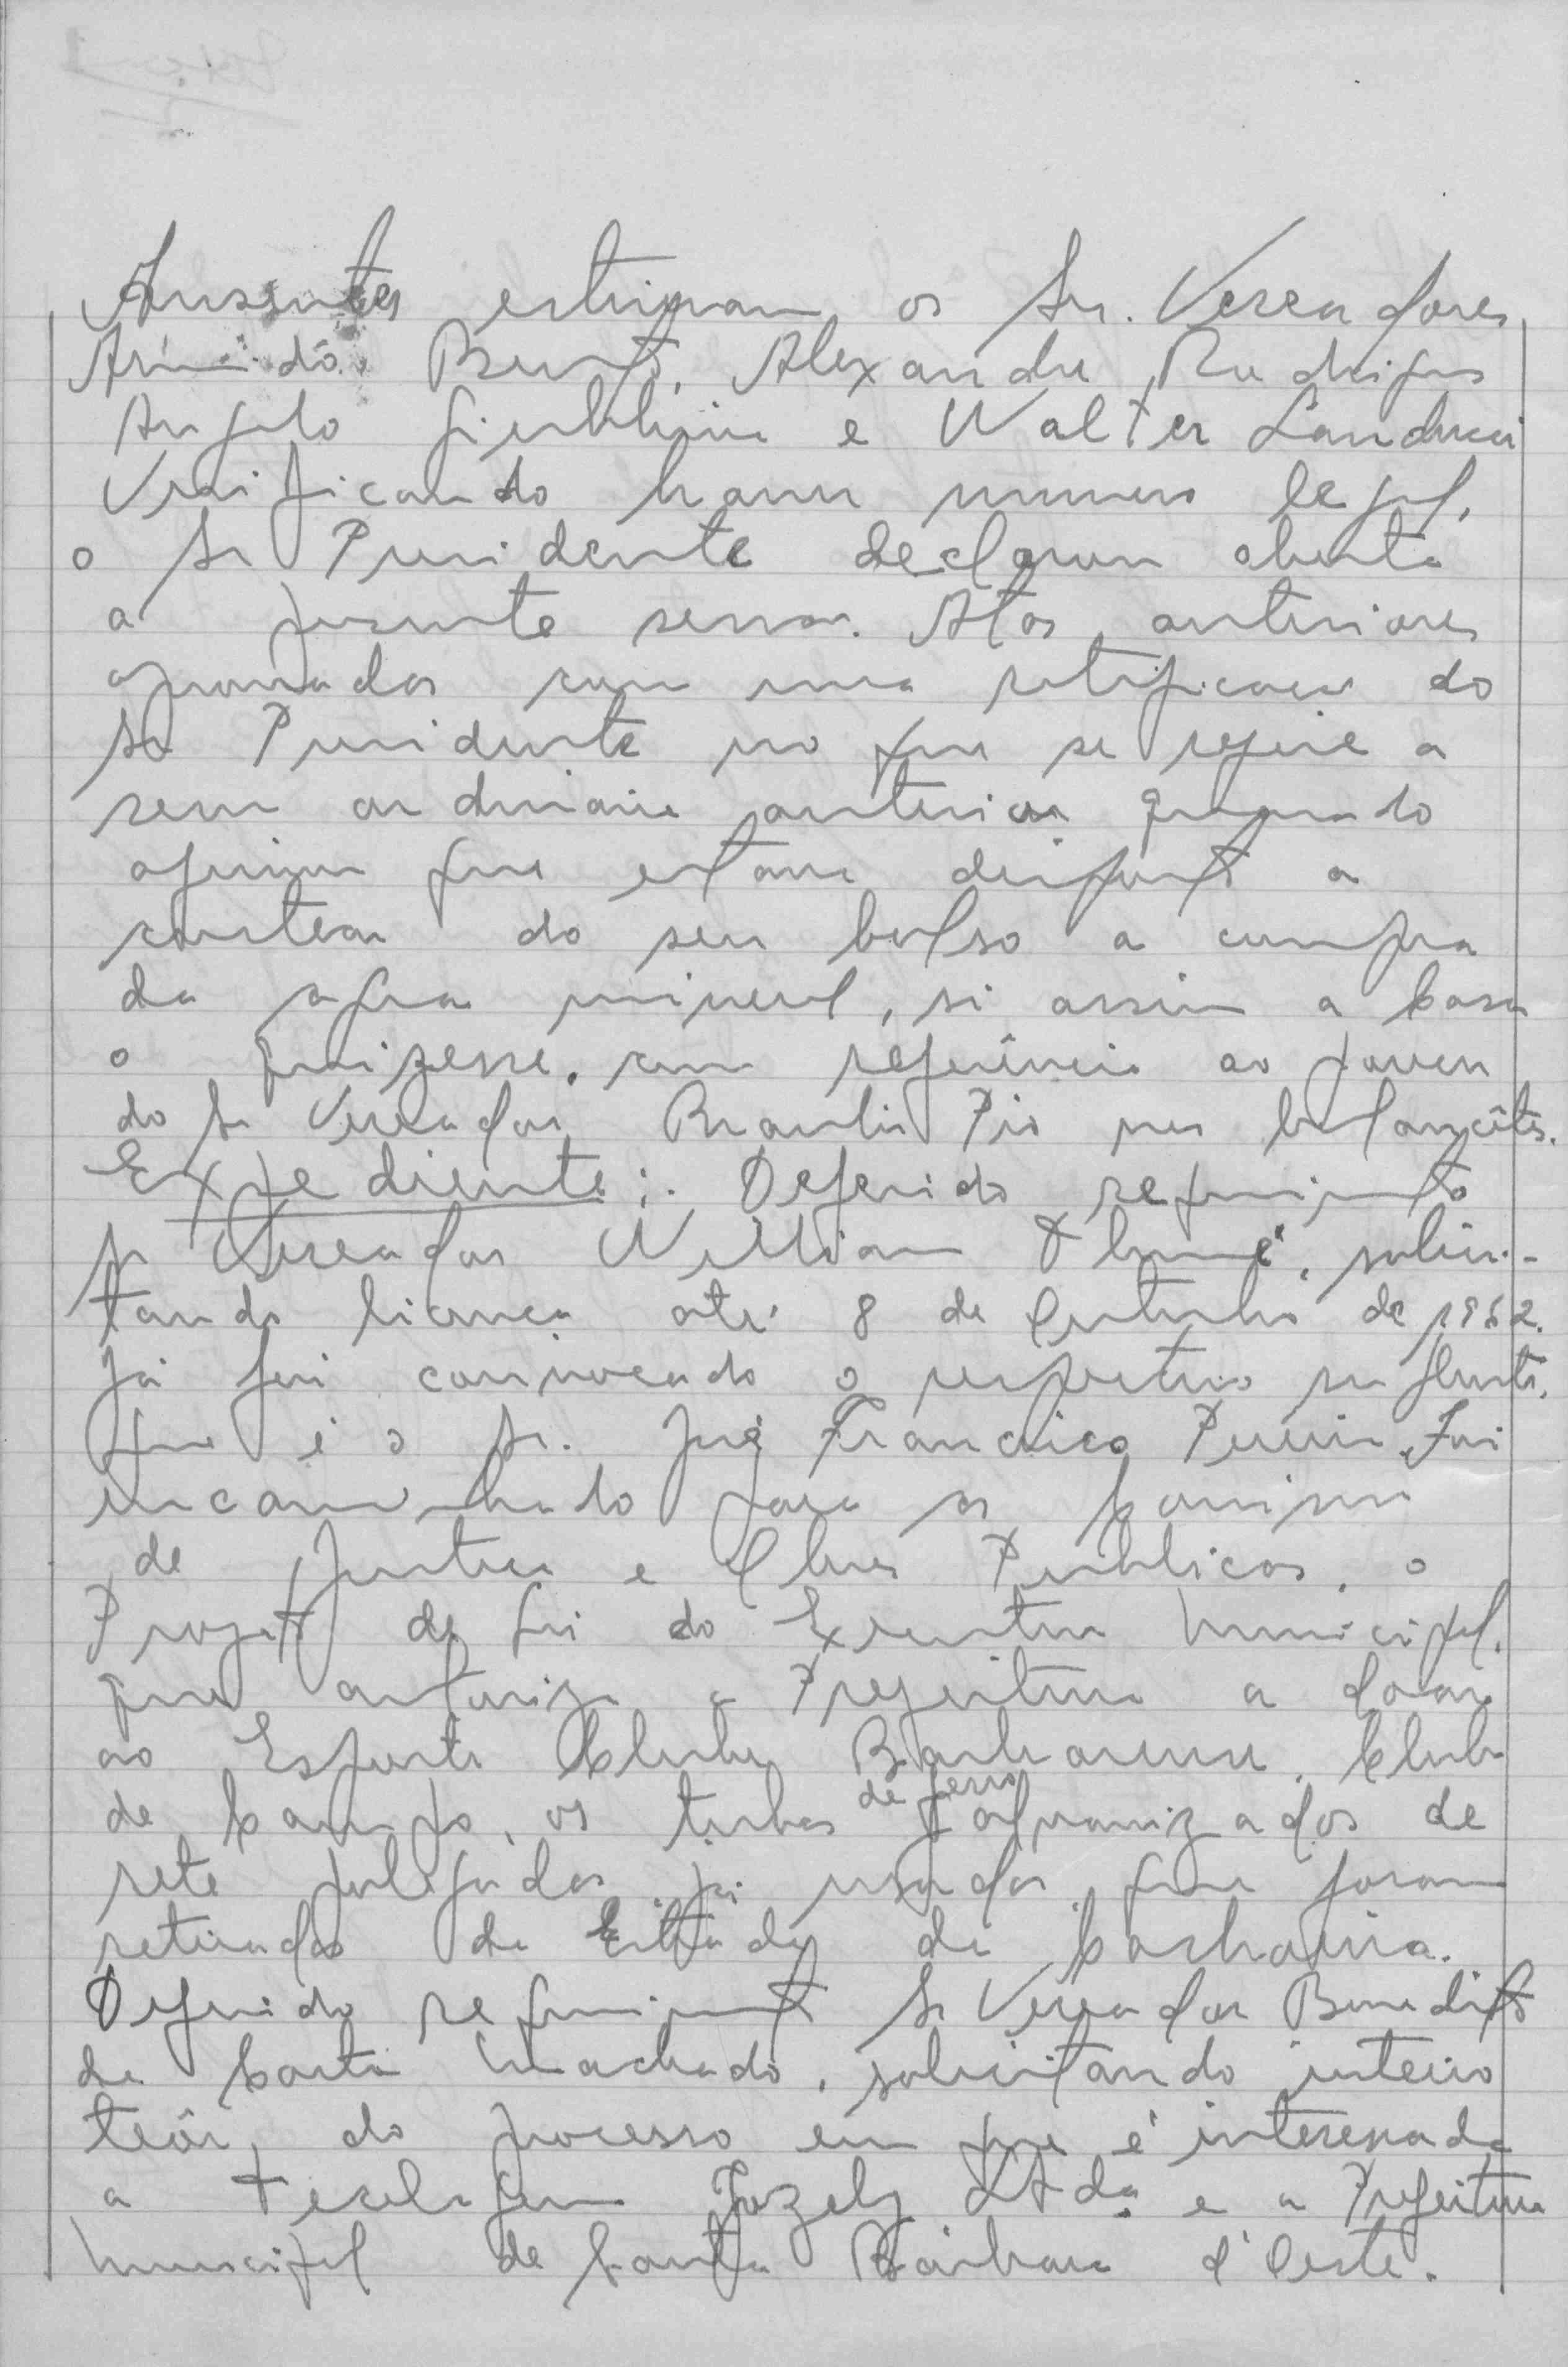 Ausentes estiveram os Srs. Vereadores
Armindo Bruno, Alexandre Rodrigues
Angelo Giubbina e Walter Landucci
Verificando haver numero legal,
o Sr Presidente declarou aberta
a presente sessão. Atas anteriores
aprovadas com uma retificação do
Sr Presidente no que se refere a
sessão ordinária anterior quando
afirmou que estava disposto a
custear do seu bolso a compra
da agua mineral, si assim a Casa
o quizesse, com referência ao parecer
do Sr Vereador Braulio Pio nos balancêtes.
Expediente: Deferido requerimento
Sr Vereador Willian Thomé, solici-
tando licença até 8 de Outubro de 1962.
Já foi convocado o respectivo suplente,
que é o Sr. José Francisco Pereira. Foi
encaminhado para as Comissões
de Justiça e Obras Publicas, o
Projeto de Lei do Executivo Municipal,
que autoriza a Prefeitura a doar
ao Esporte Clube Barbarense, Clube
de Campo, os tubos de ferro galvanizados de
sete polegadas já usados que foram
retirados da Estrada de Cachoeira.
Deferido requerimento Sr Vereador Benedito
da Costa Machado, solicitando inteiro
teôr, do processo em que é interessada
a Tecelagem Jozely Ltda e a Prefeitura
Municipal de Santa Bárbara d'Oeste.